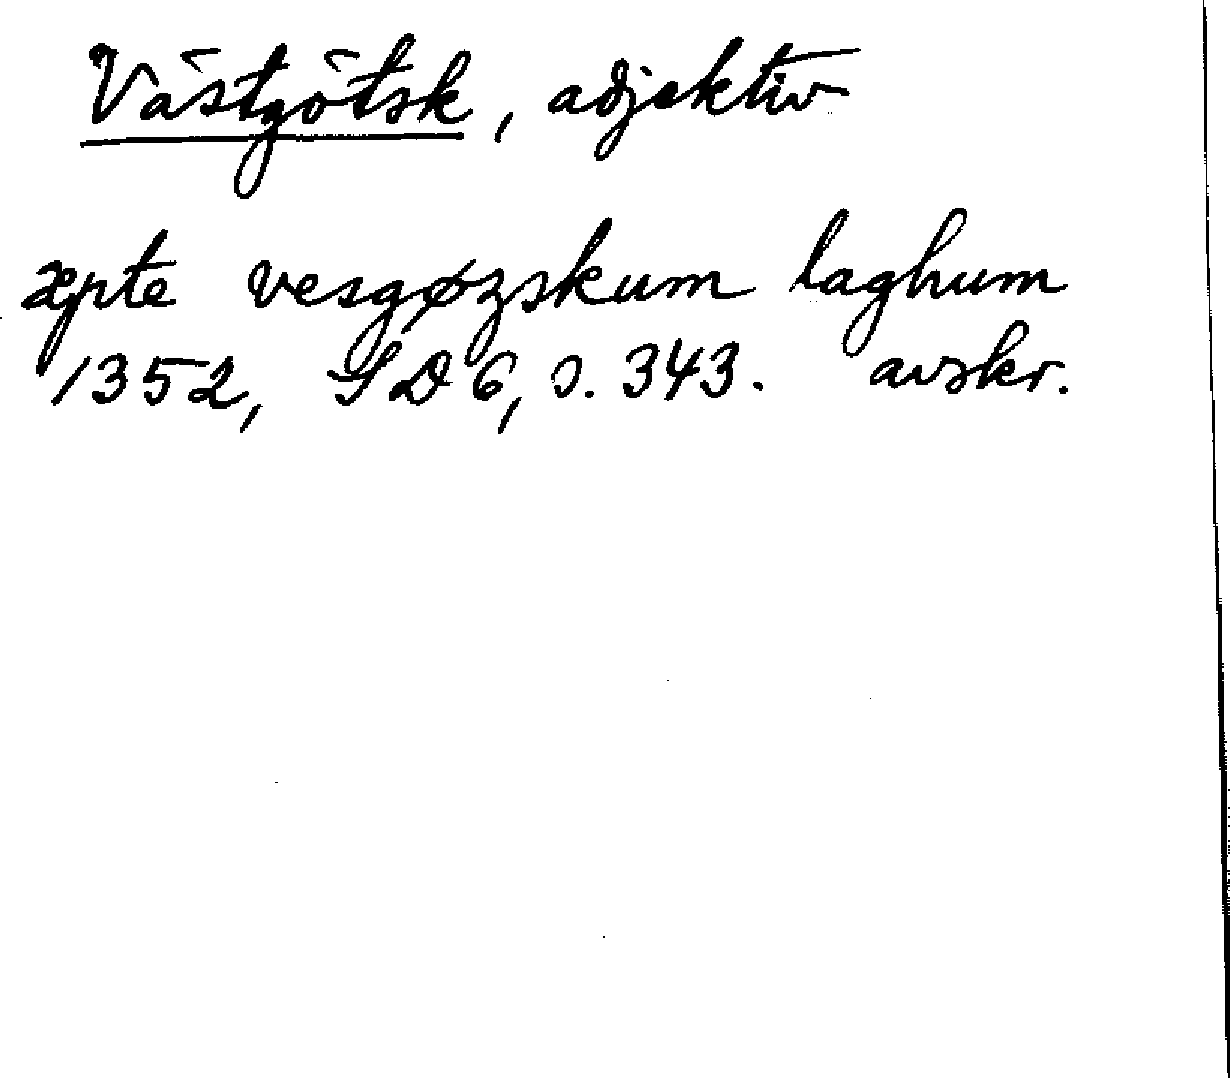 Västgötsk, adjektiv
æpte vesgøzskum laghum
1352, SD 6, s. 343. avskr.